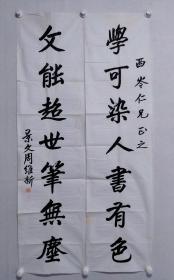 學可染人書有色
西岑仁兄正之
文能超世筆無塵
景文周維新